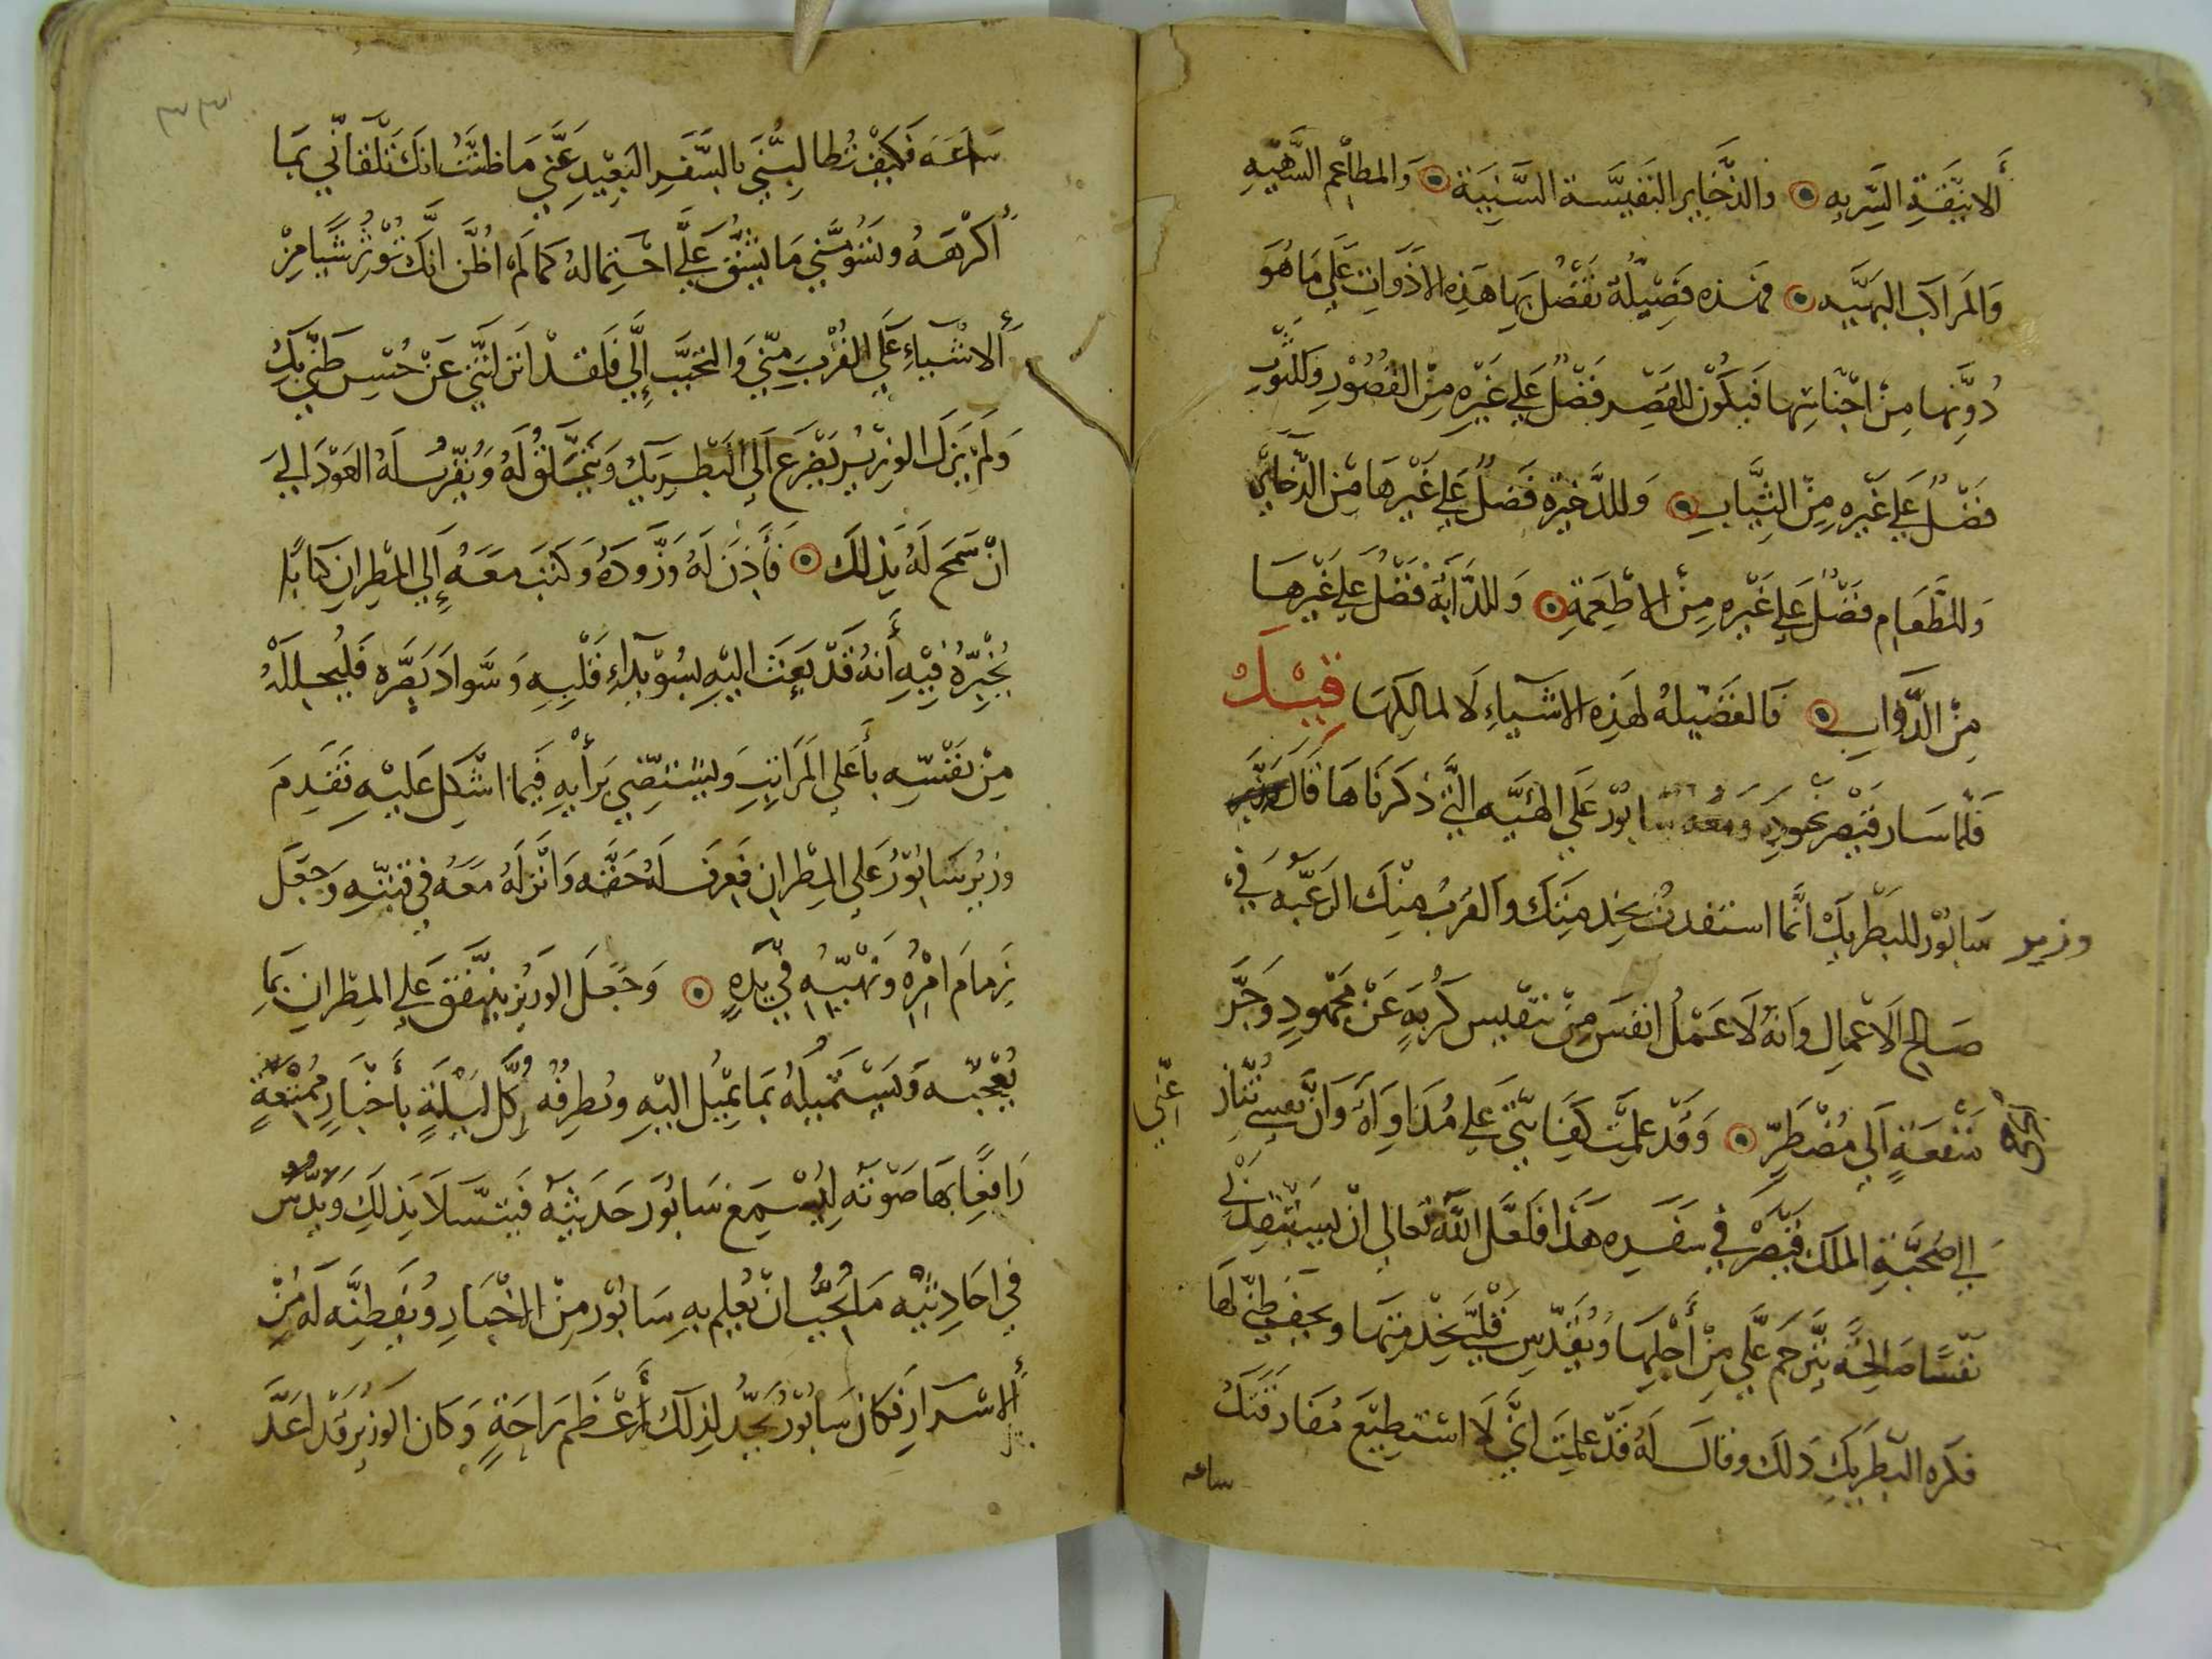 ألانيقة السريه ۞ والذخاير النفيسة السنية ۞ والمطاعم الشهيه
والمراكب البهيه ۞ فهذه فضيلة تفضل بها هذه الاذوات علي ما هو
دونها من اجناسها فيكون للقصر فضل علي غيره من القصور وللثوب
فضل علي غيره من الثياب ۞ وللدخيرة فضل علي غيرها من الذخاير
وللطعام فضل علي غيره من الاطعمة ۞ وللدابة فضل علي غيرها
من الدواب ۞ فالفضيله لهذه الاشياء لا لمالكها قيل
فلما سار قيصر نحود ومعه سابور علي الهيه التي ذكرناها قال
وزير سابور للبطريك انما استفدت بخدمتك والقرب منك الرغبه في
صالح الاعمال وانه لا عمل انفس من تنفيس كربة عن مجهود وجر
منفعة الي مضطر ۞ وقد علمت كفايتي علي مداواة وان نفسي تنازعني
الي صحبة الملك قيصر في سفره هذا فلعل الله تعالي ان يستنقذ لي
نفسا صالحة يترحم علي من أجلها ويقدس قلبي بخدمتها ويحفظني لها
فكره البطريك ذلك وقال له قد علمت اني لا استطيع مفارقتك
ساعه
٣٣
ساعه فكيف تطالبني بالسفر البعيد عني ما ظننت انك تلقاني بما
أكرهه وتسومني ما يشق علي احتماله كما لم اظن انك توثر شيا من
ألاشياء علي القرب مني والتحبب الي فلقد انزلتني عن حسن ظني بك
ولم يزل الوزير يضرع الي البطريك ويتملق له ويقرب له العود اليه
ان سمح له بذلك ۞ فأذن له وزوده وكتب معه الي المطران كتابا
يخبره فيه أنه قد بعث اليه بسويداء قلبه وسواد بصره فليحلله
من نفسه بأعلي المراتب وليستضي برأيه فيما اشكل عليه فقدم
وزير سابور علي المطران فعرف له حقه وانزله معه في قبته وجعل
زمام امره ونهيه في يده ۞ وجعل الوزير يتنفق علي المطران بما
يعجبه ويستميله بما يميل اليه ويطرفه كل ليلة بأخبار ممتعة
رافعا بها صوته ليسمع سابور حديثه فيتسلا بذلك ويدس
في احاديثه ما يحب ان يعلم به سابور من الاخبار ويفطنه له من
ألاسرار فكان سابور يجد لذلك أعظم راحة وكان الوزير قد اعد